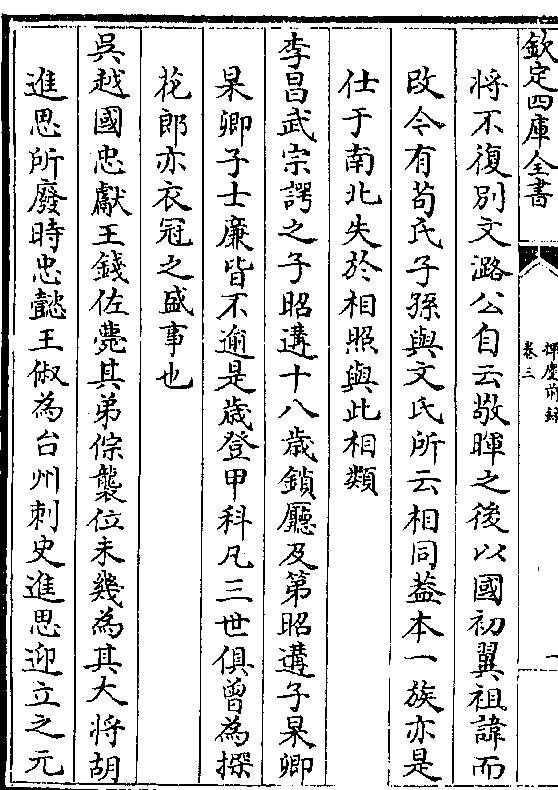 欽定四庫全書
揮麈前録
卷三
將不復別文潞公自云敬暉之後以國初翼祖諱而
改令有茍氏子孫與文氏所云相同葢本一族亦是
仕于南北失於相照與此相類
李昌武宗諤之子昭遘十八歲鎖廳及第昭遘子杲卿
杲卿子士廉皆不逾是歲登甲科凡三世俱曾為探
花郎亦衣冠之盛事也
吳越國忠獻王錢佐薨其弟倧襲位未幾為其大將胡
進思所廢時忠懿王俶為台州刺史進思迎立之元